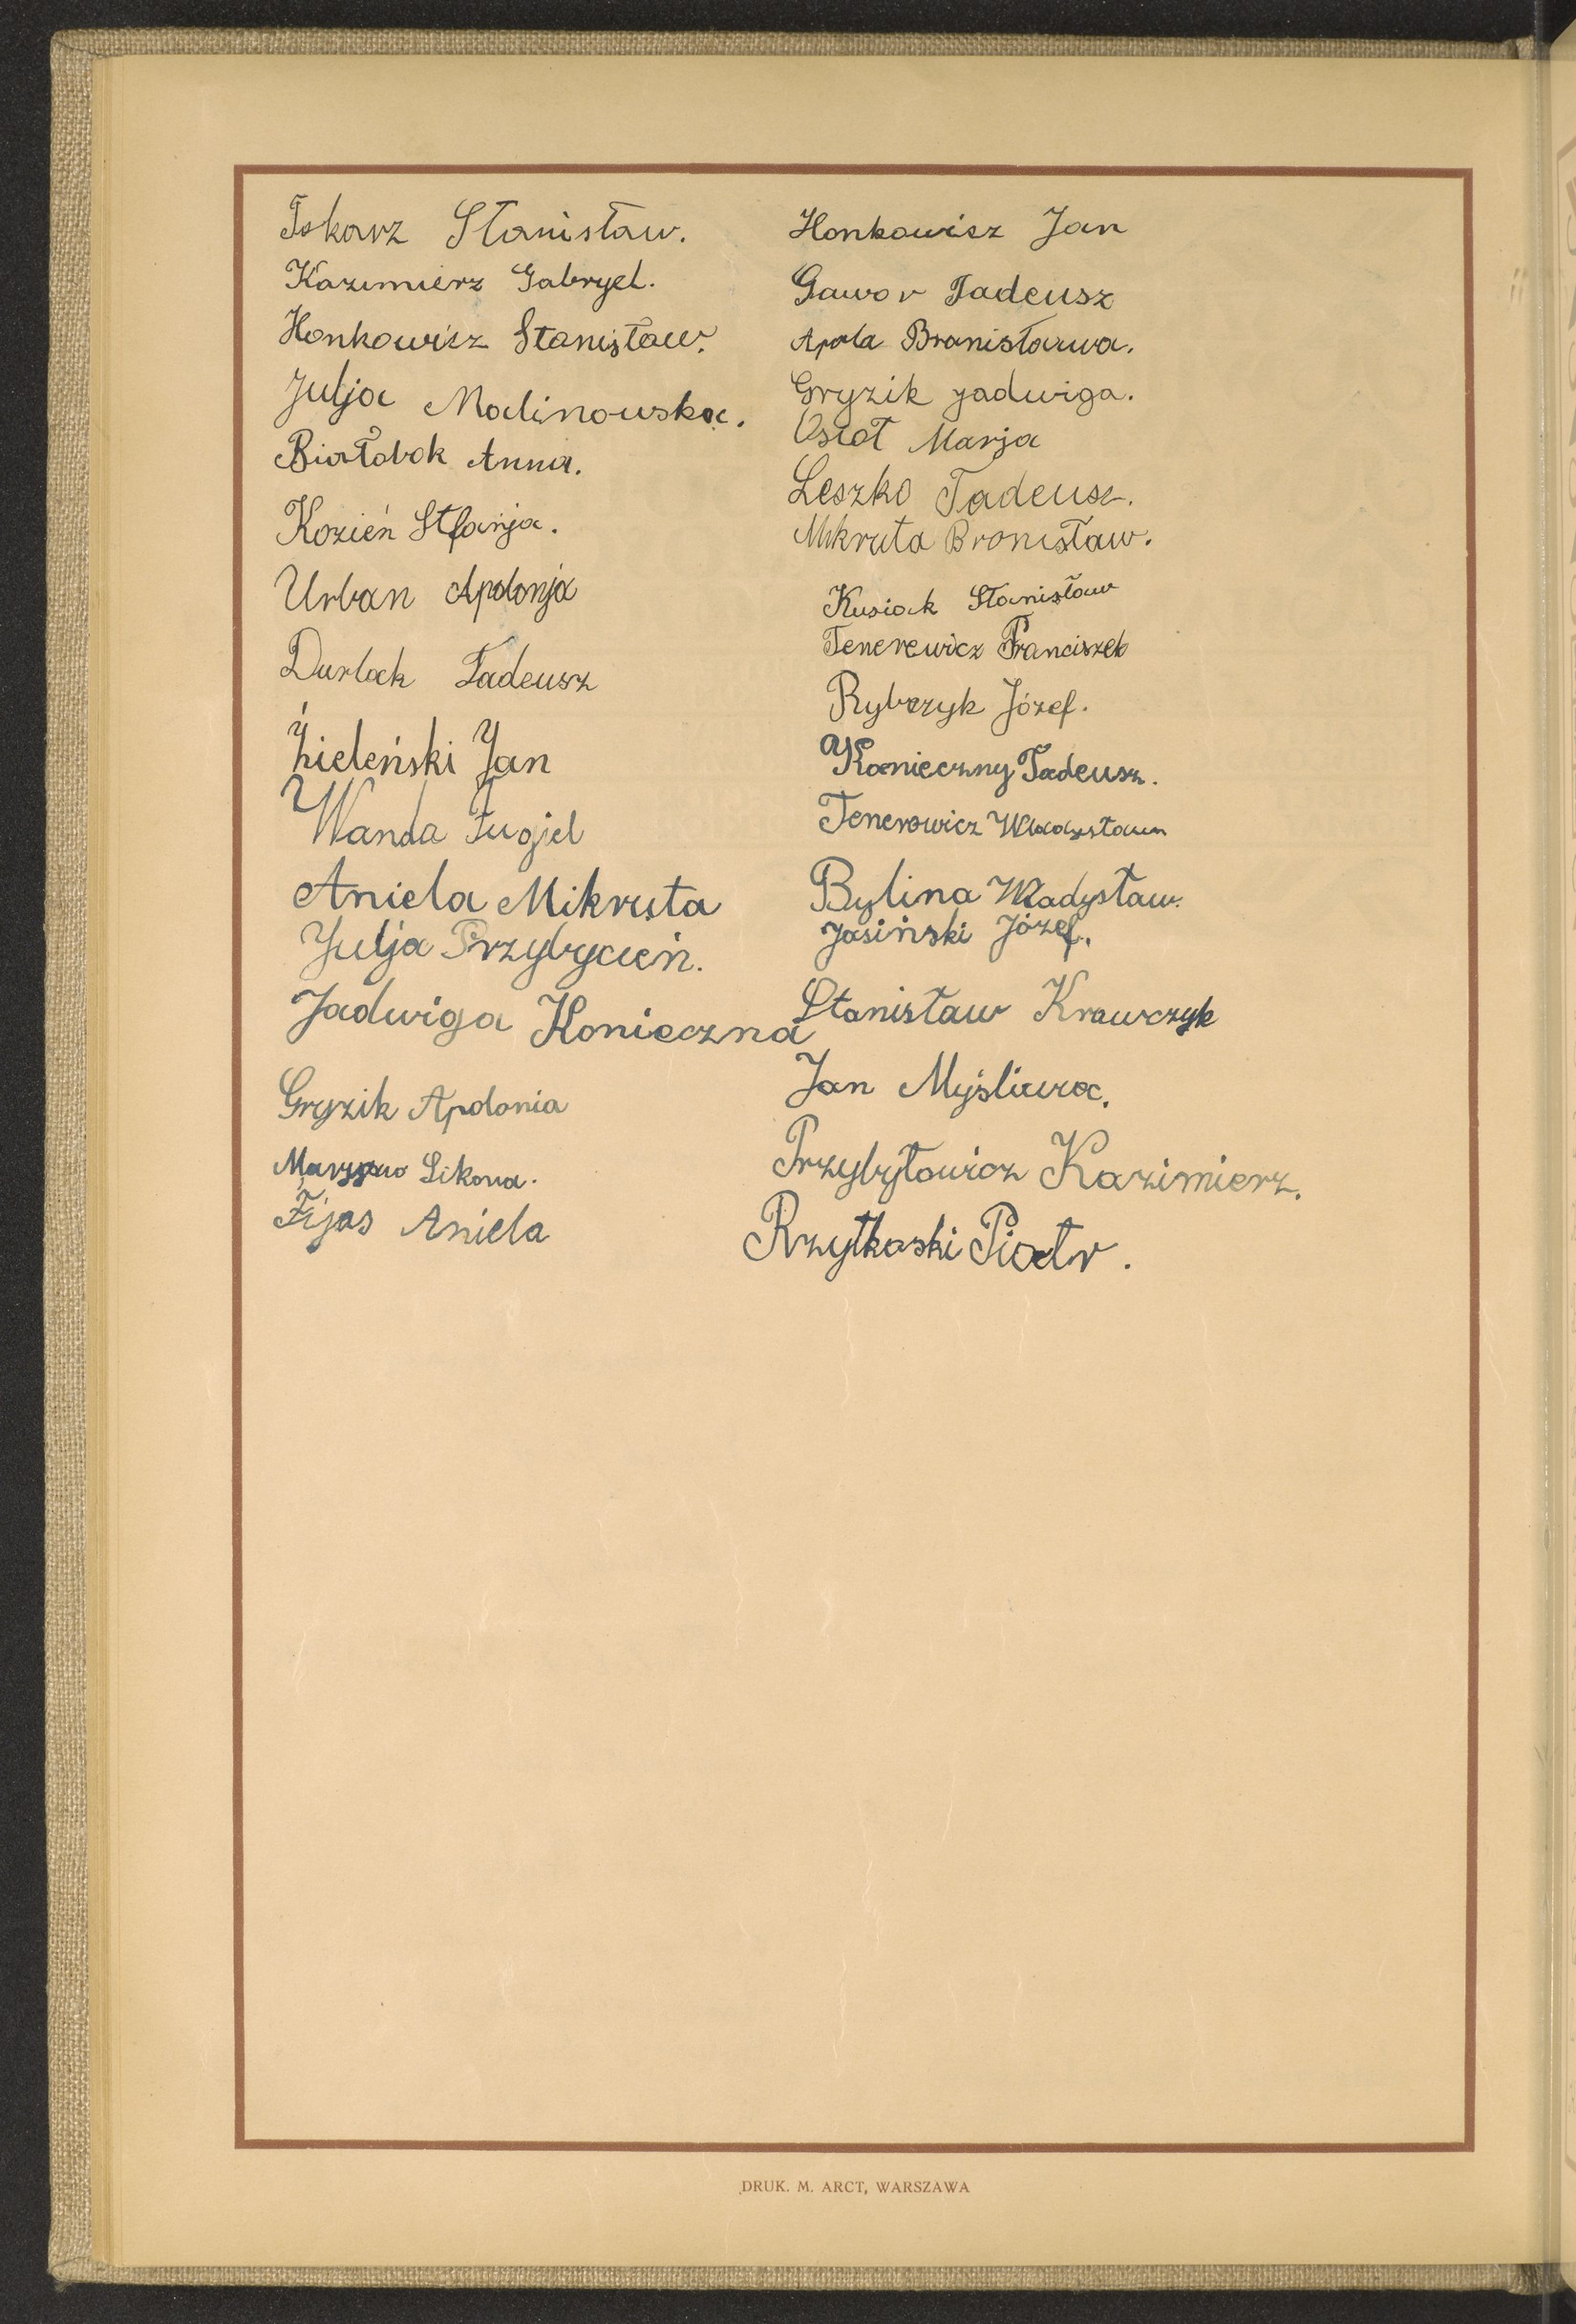 Iskarz Stanisław.
Kazimierz Gabryel.
Honkowisz Stanisław.
Julja Malinowska.
Białobok Anna.
Kozień Stfanja.
Urban Apolonja
Durlak Tadeusz
Zieleński Jan
Wanda Fugjel
Aniela Mikruta
Julja Przybycień.
Jadwiga Konieczna
Gryzik Apolonia
Sikora.
Fijas Aniela
Honkowisz Jan
Gawor Tadeusz
Apola Bronisława.
Gryzik Jadwiga.
Osioł Marja
Leszko Tadeusz.
Mikruta Bronisław.
Kusiak Stanisław
Tenerewicz Franciszek
Rybczyk Józef.
Konieczny Tadeusz.
Tenerowicz Władysław
Bylina Władysław.
Jasiński Józef.
Stanisław Krawczyk
Jan Myśliwa.
Przybyłowicz Kazimierz.
Rzytkoski Piotr.
DRUK. M. ARCT, WARSZAWA